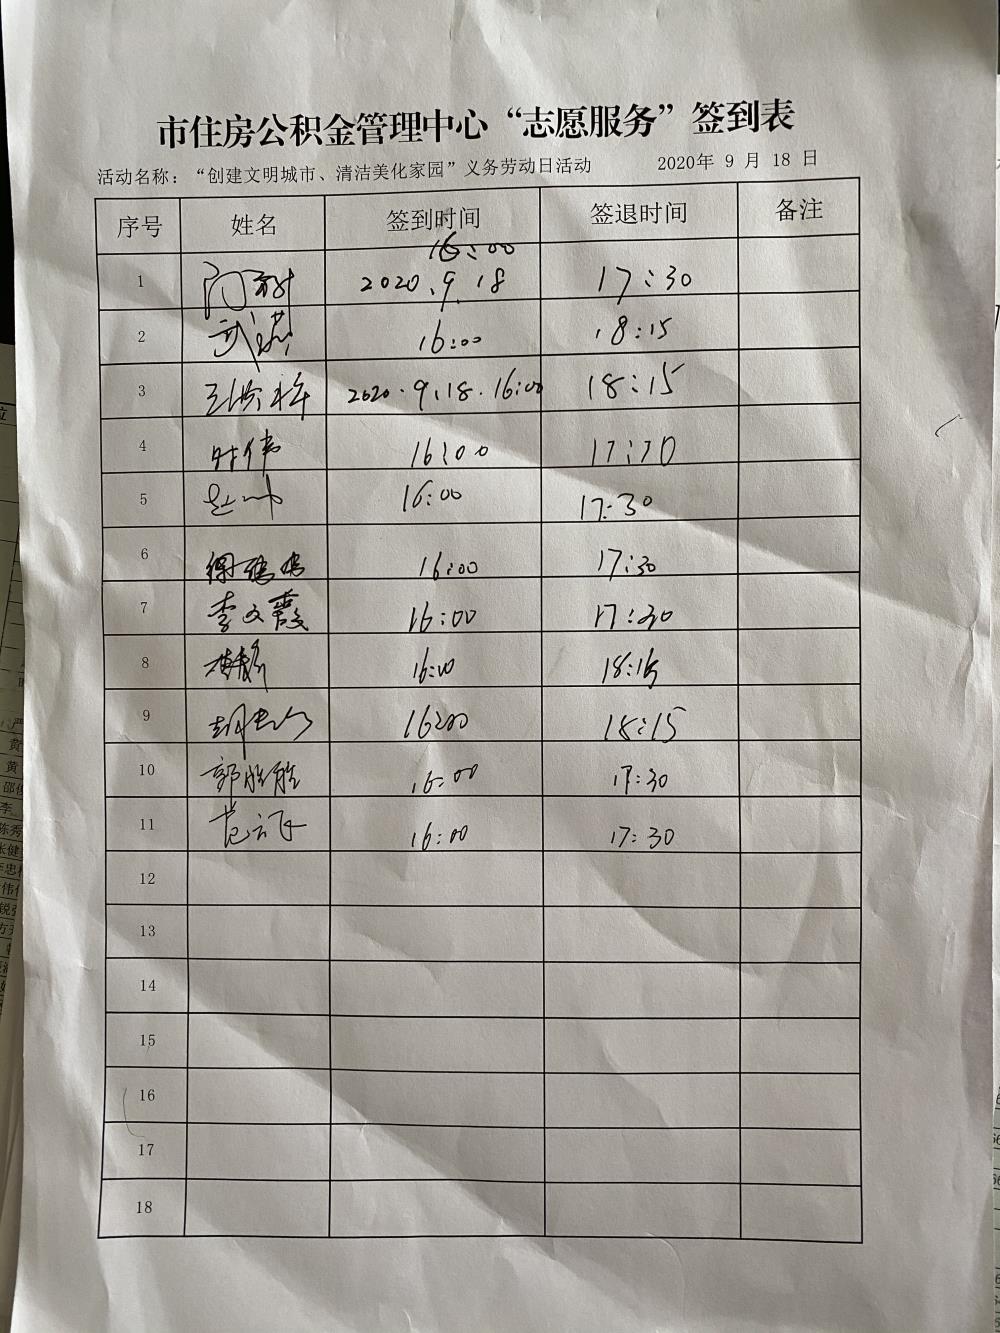 市住房公积金管理中心“志愿服务”签到表
活动名称：“创建文明城市、清洁美化家园”义务劳动日活动 2020年 9 月 18 日
序号 姓名 签到时间 签退时间 备注
16:00
1 2020.9.18 17:30
2 16:00 18:15
3 2020.9.18.16:00 18:15
4 时伟 16:00 17:30
5 16:00 17:30
6 16:00 17:30
7 李文霞 16:00 17:30
8 16:00 18:15
9 16:00 18:15
10 郭胜胜 16:00 17:30
11 范云飞 16:00 17:30
12
13
14
15
16
17
18